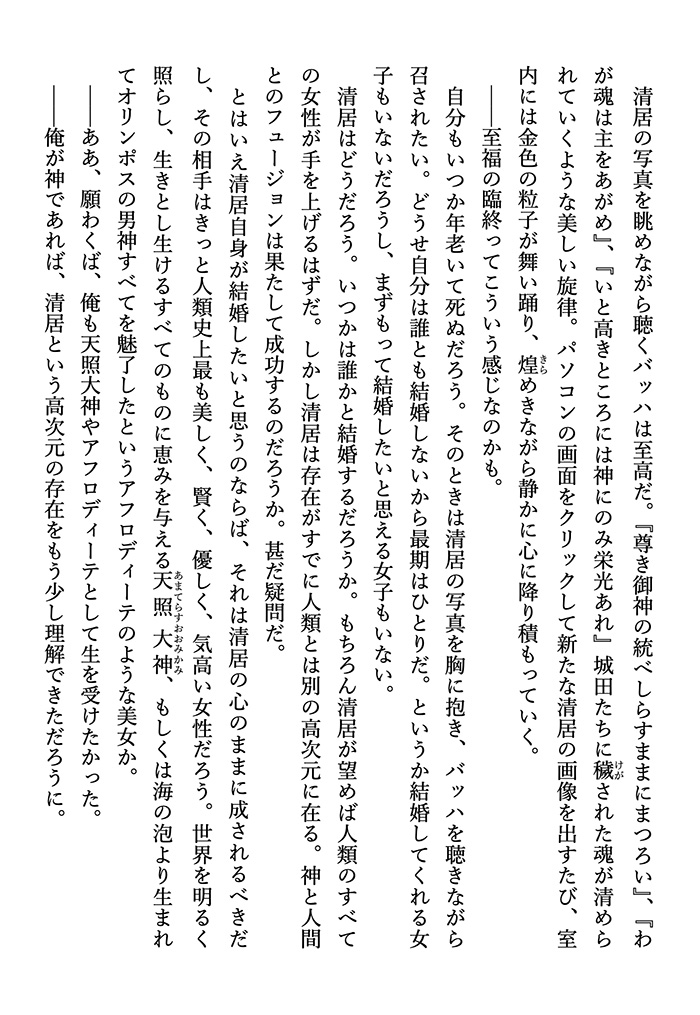 清居の写真を眺めながら聴くバッハは至高だ。『尊き御神の統べしらすままにまつろい』、『わ
が魂は主をあがめ』、『いと高きところには神にのみ栄光あれ』城田たちに穢された魂が清めら
れていくような美しい旋律。パソコンの画面をクリックして新たな清居の画像を出すたび、室
内には金色の粒子が舞い踊り、煌めきながら静かに心に降り積もっていく。
――至福の臨終ってこういう感じなのかも。
自分もいつか年老いて死ぬだろう。そのときは清居の写真を胸に抱き、バッハを聴きながら
召されたい。どうせ自分は誰とも結婚しないから最期はひとりだ。というか結婚してくれる女
子もいないだろうし、まずもって結婚したいと思える女子もいない。
清居はどうだろう。いつかは誰かと結婚するだろうか。もちろん清居が望めば人類のすべて
の女性が手を上げるはずだ。しかし清居は存在がすでに人類とは別の高次元に在る。神と人間
とのフュージョンは果たして成功するのだろうか。甚だ疑問だ。
とはいえ清居自身が結婚したいと思うのならば、それは清居の心のままに成されるべきだ
し、その相手はきっと人類史上最も美しく、賢く、優しく、気高い女性だろう。世界を明るく
照らし、生きとし生けるすべてのものに恵みを与える天照大神、もしくは海の泡より生まれ
てオリンポスの男神すべてを魅了したというアフロディーテのような美女か。
――ああ、願わくば、俺も天照大神やアフロディーテとして生を受けたかった。
――俺が神であれば、清居という高次元の存在をもう少し理解できただろうに。